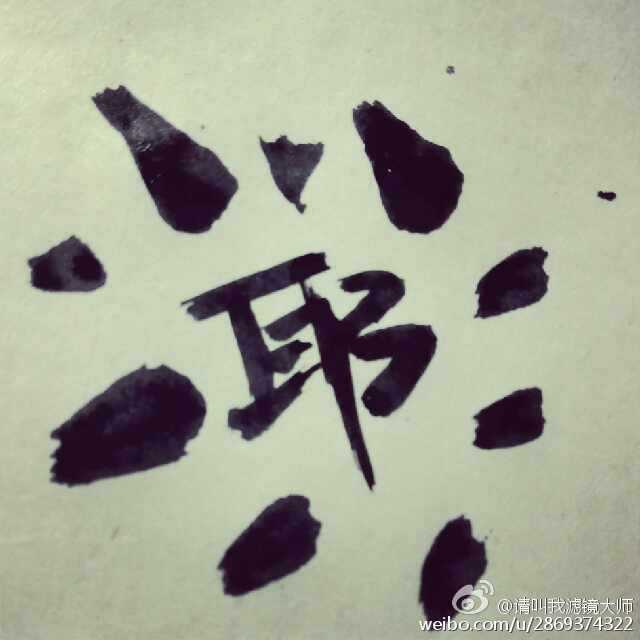 耶
@请叫我滤镜大师
weibo.com/u/2869374322